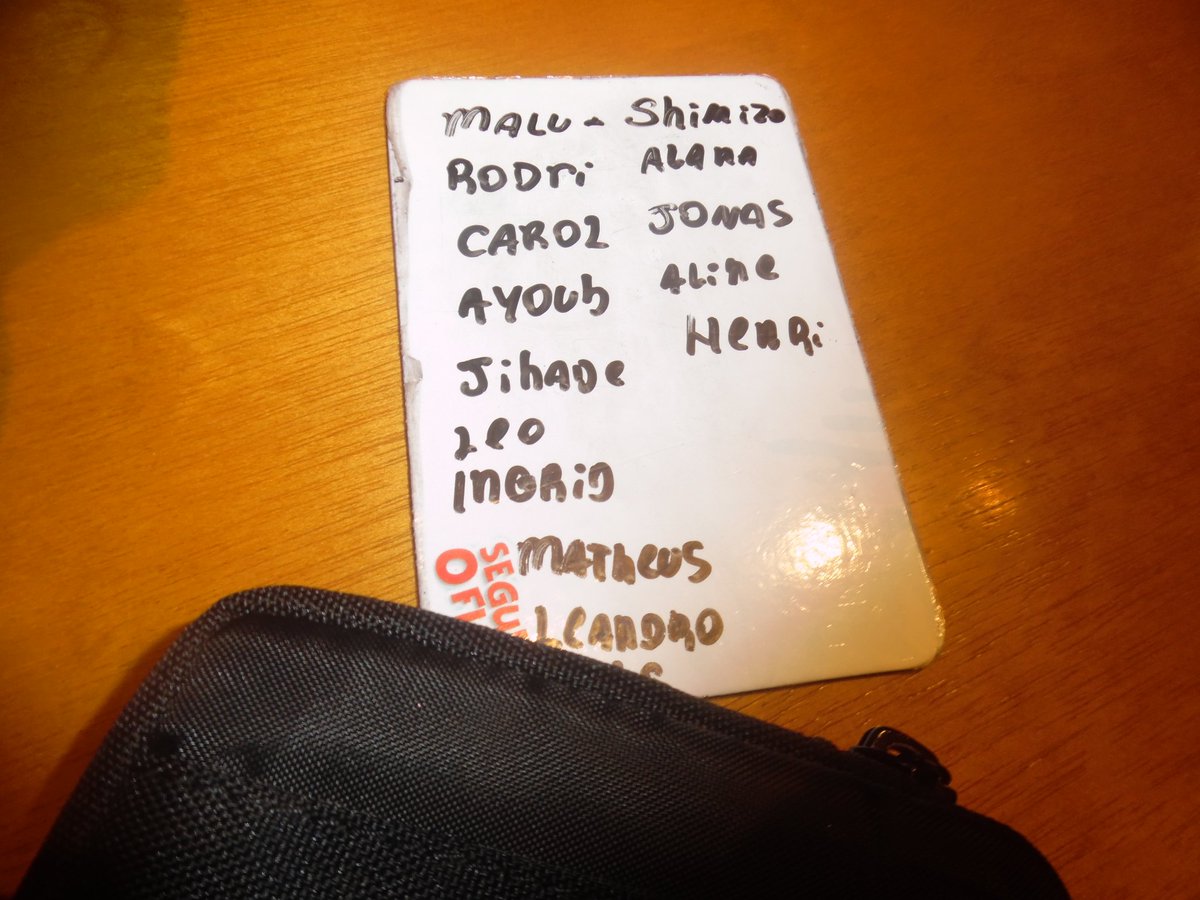 MALU - Shimizo
RODri
ALANA
CAROL
JONAS
AYOUb
ALiNe
Jihade
HENRi
Leo
INGRiD
MATheus
LEANDRO
SEGU
OFI